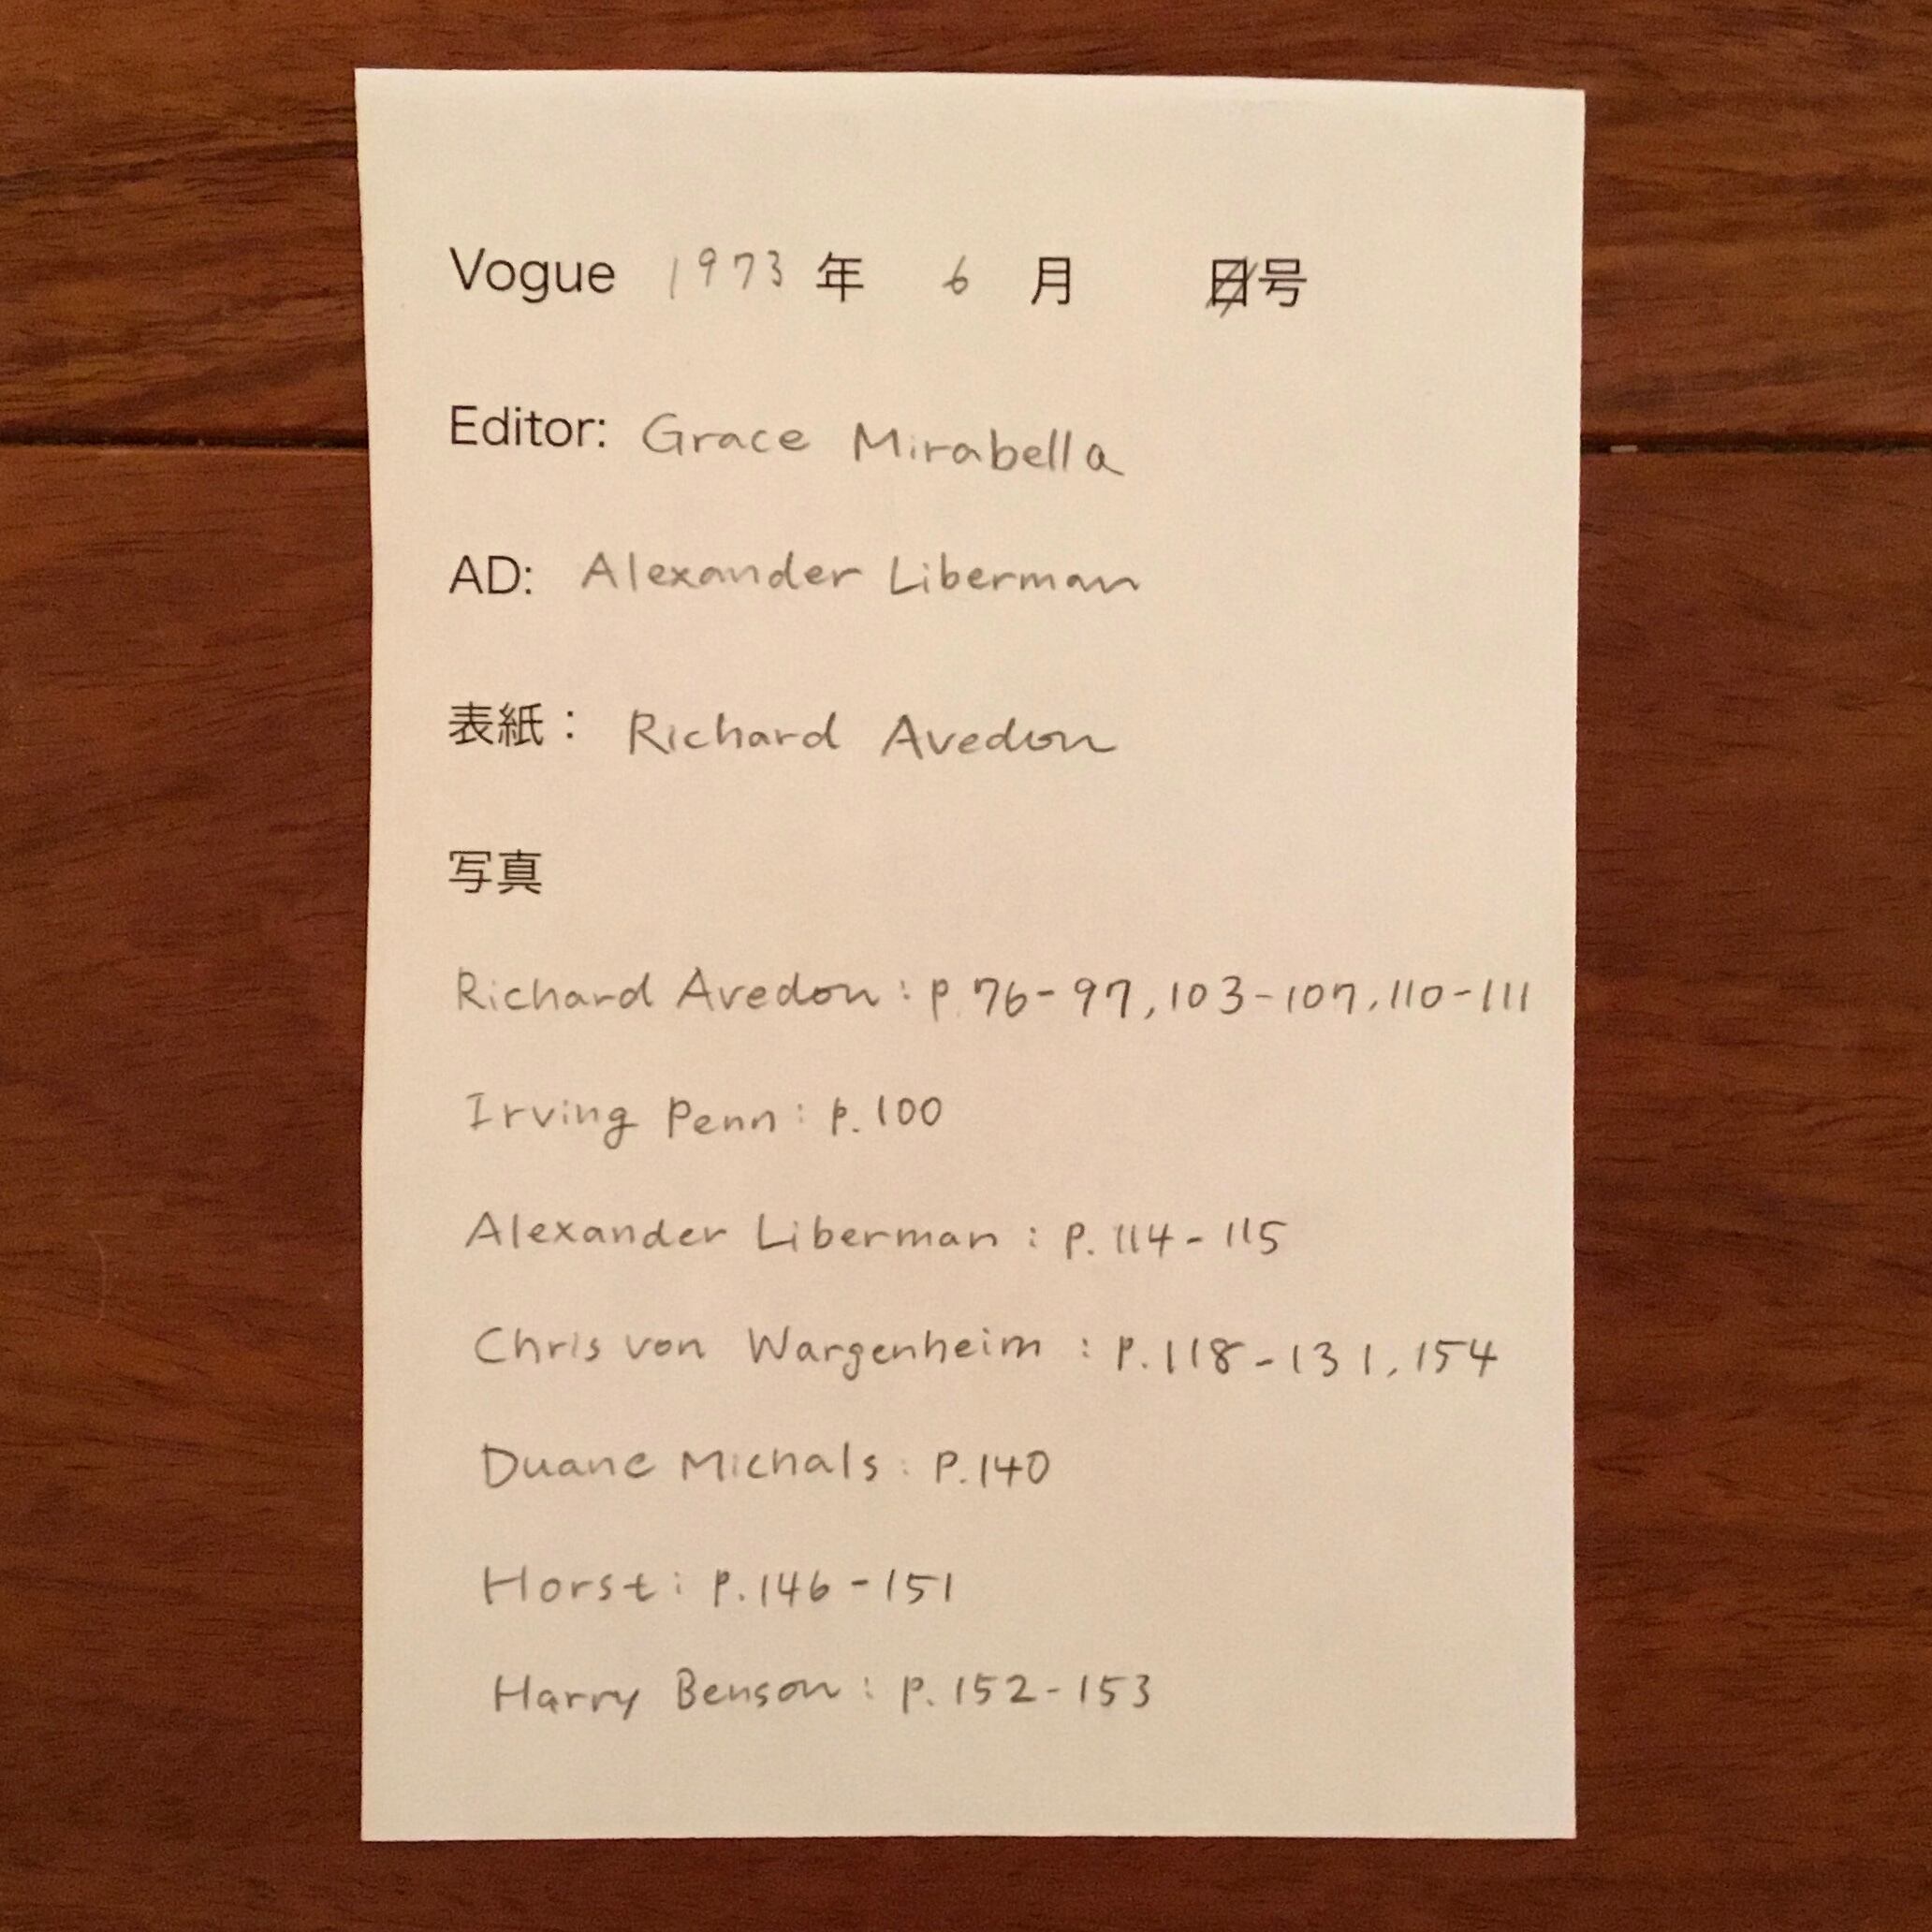 Vogue 1973 年 6 月 日号
Editor: Grace Mirabella
AD: Alexander Liberman
表紙： Richard Avedon
写真
Richard Avedon : p.76-97, 103-107, 110-111
Irving Penn : p.100
Alexander Liberman : p.114-115
Chris von Wargenheim : p.118-131, 154
Duane Michals : p.140
Horst : p.146-151
Harry Benson : p.152-153